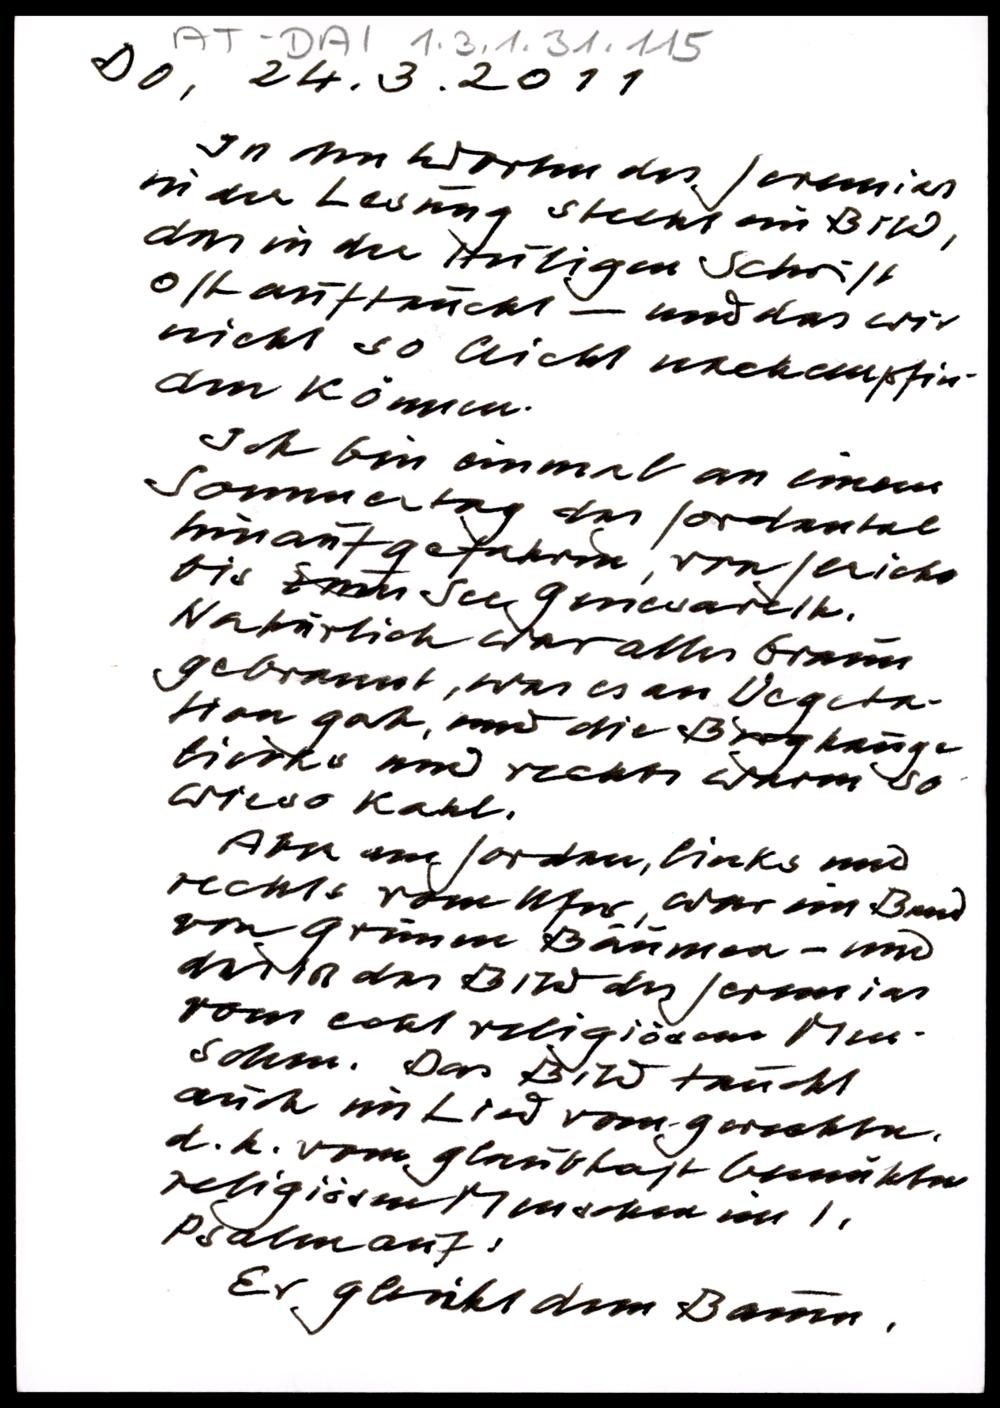 AT-DAI 1.3.1.31.115
Do, 24.3.2011
In den Worten des Jeremias
in der Lesung steckt ein Bild,
das in der Heiligen Schrift
oft auftaucht – und das wir
nicht so leicht nachempfin-
den können.
Ich bin einmal an einem
Sommertag das Jordantal
hinaufgefahren, von Jericho
bis zum See Genesareth.
Natürlich war alles braun
gebrannt, was es an Vegeta-
tion gab, und die Berghänge
links und rechts waren so-
wieso kahl.
Aber am Jordan, links und
rechts vom Ufer, war ein Band
von grünen Bäumen – und
das ist das Bild des Jeremias
vom echt religiösen Men-
schen. Das Bild taucht
auch im Lied vom gerechten,
d.h. vom glaubhaft bemühten
religiösen Menschen im 1.
Psalm auf:
Er gleicht dem Baum,